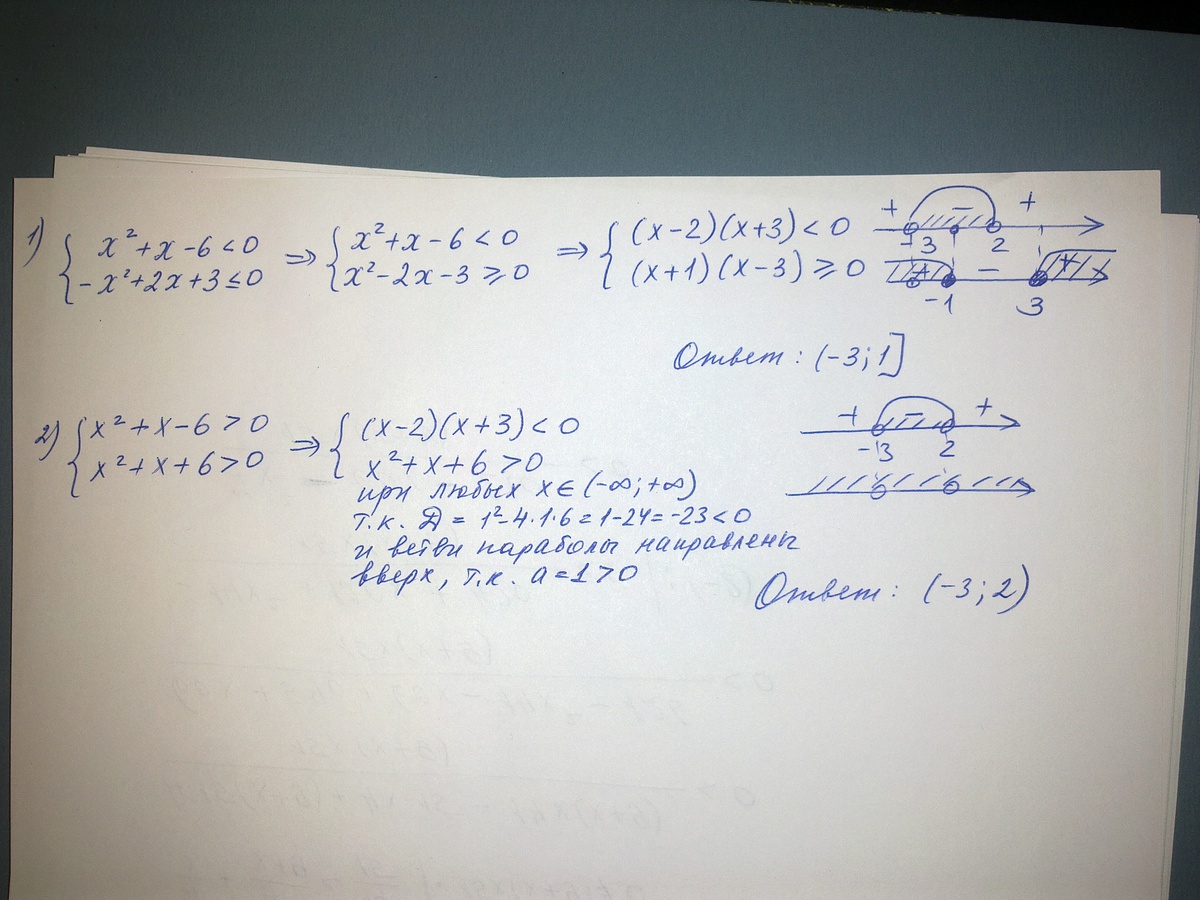 1) { x² + x - 6 < 0 ⇒ { x² + x - 6 < 0 ⇒ { (x-2)(x+3) < 0
-x² + 2x + 3 ≤ 0 x² - 2x - 3 ⩾ 0 (x+1)(x-3) ⩾ 0
+ - +
-3 2
+ - +
-1 3
Ответ: (-3; 1]
2) { x² + x - 6 > 0 ⇒ { (x-2)(x+3) < 0
x² + x + 6 > 0 x² + x + 6 > 0
+ - +
-3 2
при любых x ∈ (-∞; +∞)
т.к. Д = 1² - 4·1·6 = 1 - 24 = -23 < 0
и ветви параболы направлены
вверх, т.к. a = 1 > 0
Ответ: (-3; 2)